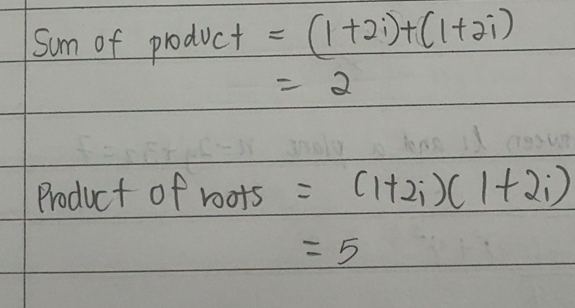 Sum of product = (1+2i)+(1+2i)
= 2
Product of roots = (1+2i)(1+2i)
= 5